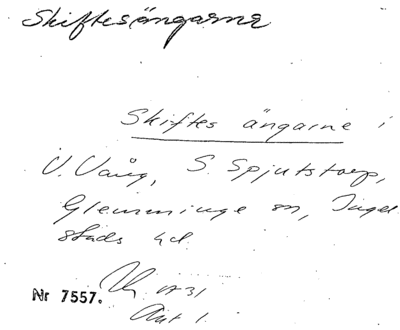 Skiftesängarne
Skiftes ängarne i
V. Vång, S. Spjutstorp,
Glemminge sn, Ingel
stads hd.
Nr 7557.
Akt 1.